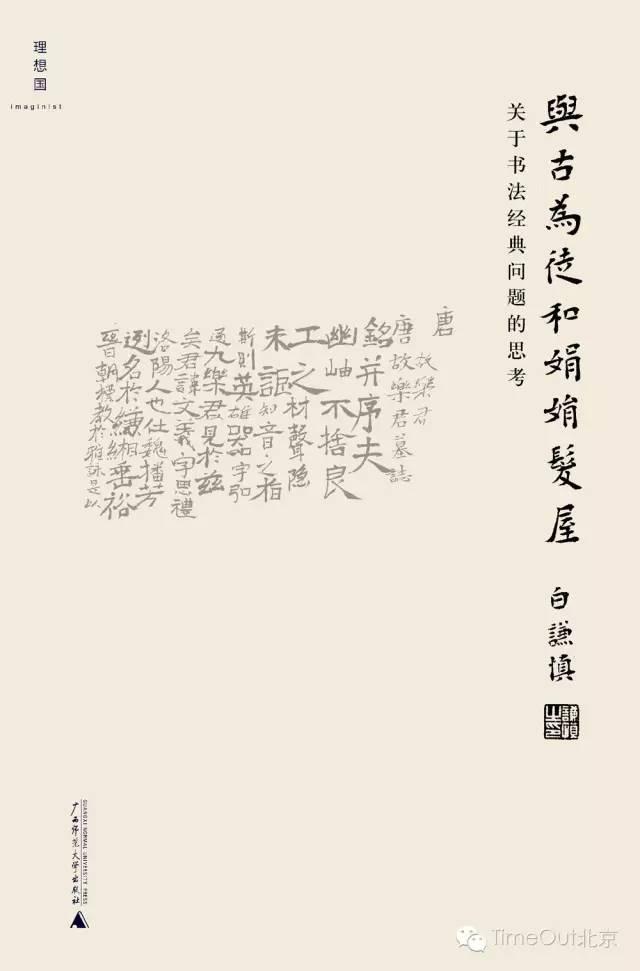 理想国
imaginist
與古為徒和娟娟髮屋
关于书法经典问题的思考
白謙慎
唐
故樂君
唐故樂君墓誌
銘并序夫
幽岫不捨良
工之材聲隐
未謳知音之指
斯則英雄器字弘
遠九樂君見於兹
矣君諱文義字思禮
洛陽人也仕魏播芳
列名於縑緗垂裕
晉朝標教於雅誄是以
广西师范大学出版社
GUANGXI NORMAL UNIVERSITY PRESS
TimeOut北京